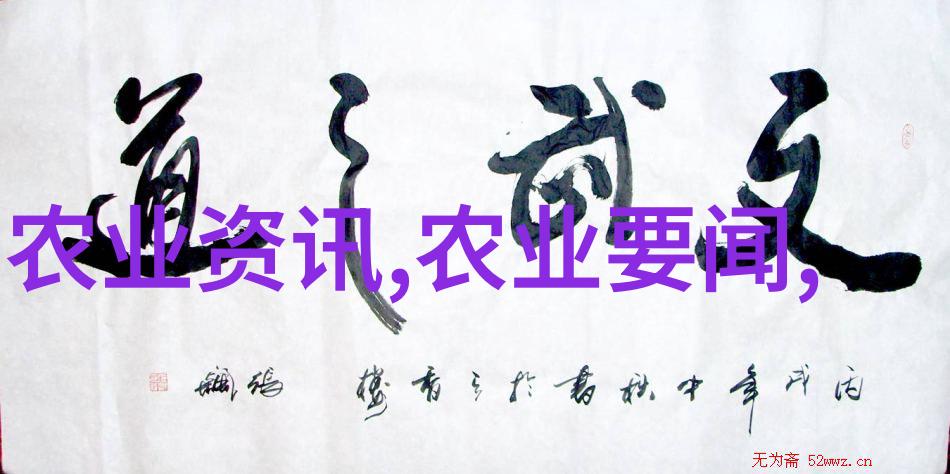 文武之道
农业资讯,农业要闻,
丙戌年中秋書於香樓 張飆
无为斋 52wwz.cn